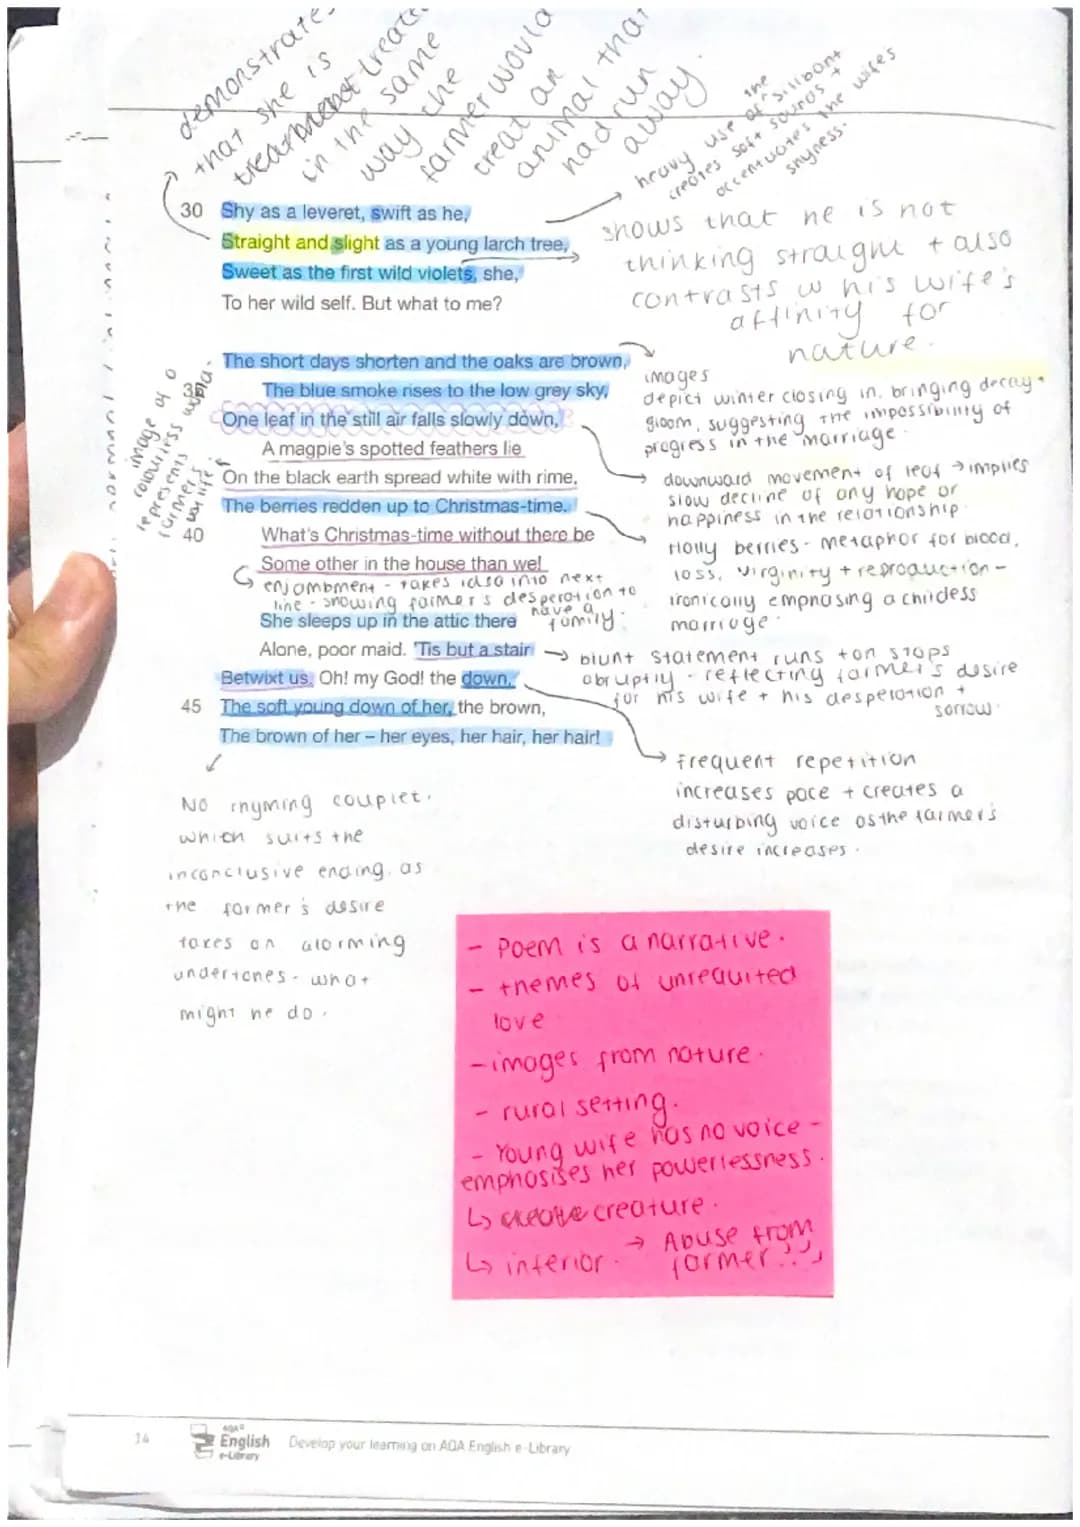 demonstrates
that she is
treated
in the same
way the
farmer would
treat an
animal that
had run
away.
heavy use of the sillibont
creates soft sounds +
accentuates the wife's
shyness.
30 Shy as a leveret, swift as he,
Straight and slight as a young larch tree,
Sweet as the first wild violets, she,
To her wild self. But what to me?
shows that he is not
thinking straight + also
contrasts w his wife's
affinity for
nature.
The short days shorten and the oaks are brown,
35 The blue smoke rises to the low grey sky,
One leaf in the still air falls slowly down,
A magpie's spotted feathers lie
On the black earth spread white with rime,
The berries redden up to Christmas-time.
40 What's Christmas-time without there be
Some other in the house than we!
image of a
colourless world.
represents
farmer's
life
images
depict winter closing in, bringing decay +
gloom, suggesting the impossibility of
progress in the marriage.
downward movement of leaf → implies
slow decline of any hope or
happiness in the relationship.
Holly berries - metaphor for blood,
loss, virginity + reproduction -
ironically emphasing a childess
marriage.
enjambment - takes idea into next
line - showing farmer's desperation to
have a
family.
She sleeps up in the attic there
Alone, poor maid. 'Tis but a stair
Betwixt us. Oh! my God! the down,
45 The soft young down of her, the brown,
The brown of her – her eyes, her hair, her hair!
→ blunt statement runs + on stops
abruptly - reflecting farmer's desire
for his wife + his desperation +
sorrow.
Frequent repetition
increases pace + creates a
disturbing voice as the farmer's
desire increases.
No rhyming couplet.
which suits the
inconclusive ending, as
the farmer's desire
takes on alarming
undertones - what
might he do.
- Poem is a narrative.
- themes of unrequited
love
- images from nature.
- rural setting.
- Young wife has no voice -
emphasises her powerlessness.
↳ creature.
↳ inferior. → Abuse from
farmer!!
14
AQA
English
e-Library
Develop your learning on AQA English e-Library